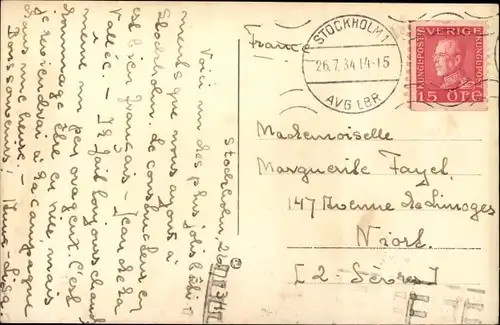 Stockholm, 26
Voici un des plus jolis
ments que nous ayons à
Stockholm. Le constructeur en
est bien français - Jean de la
Vallée. - Il fait toujours chaud
un peu orageux. C'est
dommage être en ville, mais
je reviendrai à la campagne
dans une heure -
Bons souvenirs,
France
STOCKHOLM 1
26.7.34 14-15
AVG LBR
SVERIGE
15 ÖRE
Mademoiselle
Marguerite Fayel,
147 Avenue de Limoges
Niort.
[2. Sèvres]